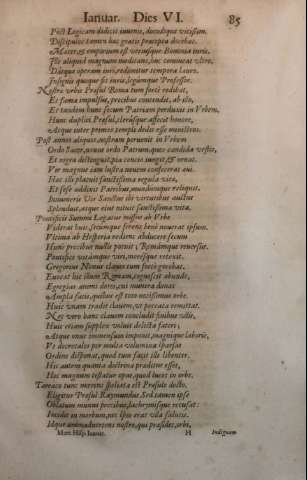 Ianuar. Dies VI. 85
Post Logicam didicit iuuenis, docuitque vicissim.
Discipulos tamen hac gratis præcepta docebat.
Mater, & emporium est vtriusque Bononia iuris,
Ille aliquid magnum meditans, hanc contendit
Datque operam iuri, redimitur tempora lauro.
Insignis quoque fit iuris, legumque Professor.
Nostra vrbis Præsul Roma tum forte redibat,
Et fama impulsus, precibus contendit, ab illo,
Et tandem hunc secum Patriam perduxit in Vrbem,
Hunc duplici Præsul, clerusque affecit honore,
Atque inter primos templi dedit esse ministros.
Post annos aliquot, nostram peruenit in Vrbem
Ordo Sacer, nouus ordo Patrum, quos candida vestis,
Et nigra distinguit, pia concio iungit, & ornat.
Vir magnus tam lustra nouem confecerat æui.
Hac illi placuit sanctissima regula viro,
Et sese addixit Patribus, mundumque reliquit,
Innumeris Vir Sanctus ibi virtutibus auctus
Splenduit, atque eius nituit sanctissima vita.
Pontificis Summi Legatus missus ab Vrbe
Viderat huic, secumque ferens bene nouerat ipsum.
Vltima ab Hesteria rediens abducere secum
Hunc precibus nullis potuit; Romamque reuersus.
Pontifici totamque viri, moresque retexit.
Gregorius Nonus clauos tum forte gerebat.
Euocat hic illum Romam, cognoscit abunde,
Egregias animi dotes, cui munera danti
Ampla satis, quibus est toto notissimus orbe.
Huic vnam tradit clauem, vt peccata remittat.
Nec vero hanc clauem concludit finibus vllis,
Huic etiam supplex voluit delicta fateri;
Atque onus immensum imponit, magnique laboris,
Vt decretales per multa volumina sparsas
Ordine disponat, quod tum facit ille libenter.
Hic autem quanta doctrina præditus esset,
Hoc magnum testatur opus, quod lucet in orbe.
Tarraco tunc mœrens spoliata est Præsule docto.
Eligitur Præsul Raymundus, Sed tamen ipse
Oblatum munus precibus, lachrymisque recusat:
Incidit in morbum, nec spes erat vlla salutis.
Idque animaduertens noster, qui præsidet, orbi,
Mart. Hisp. Ianuar. H Indignum